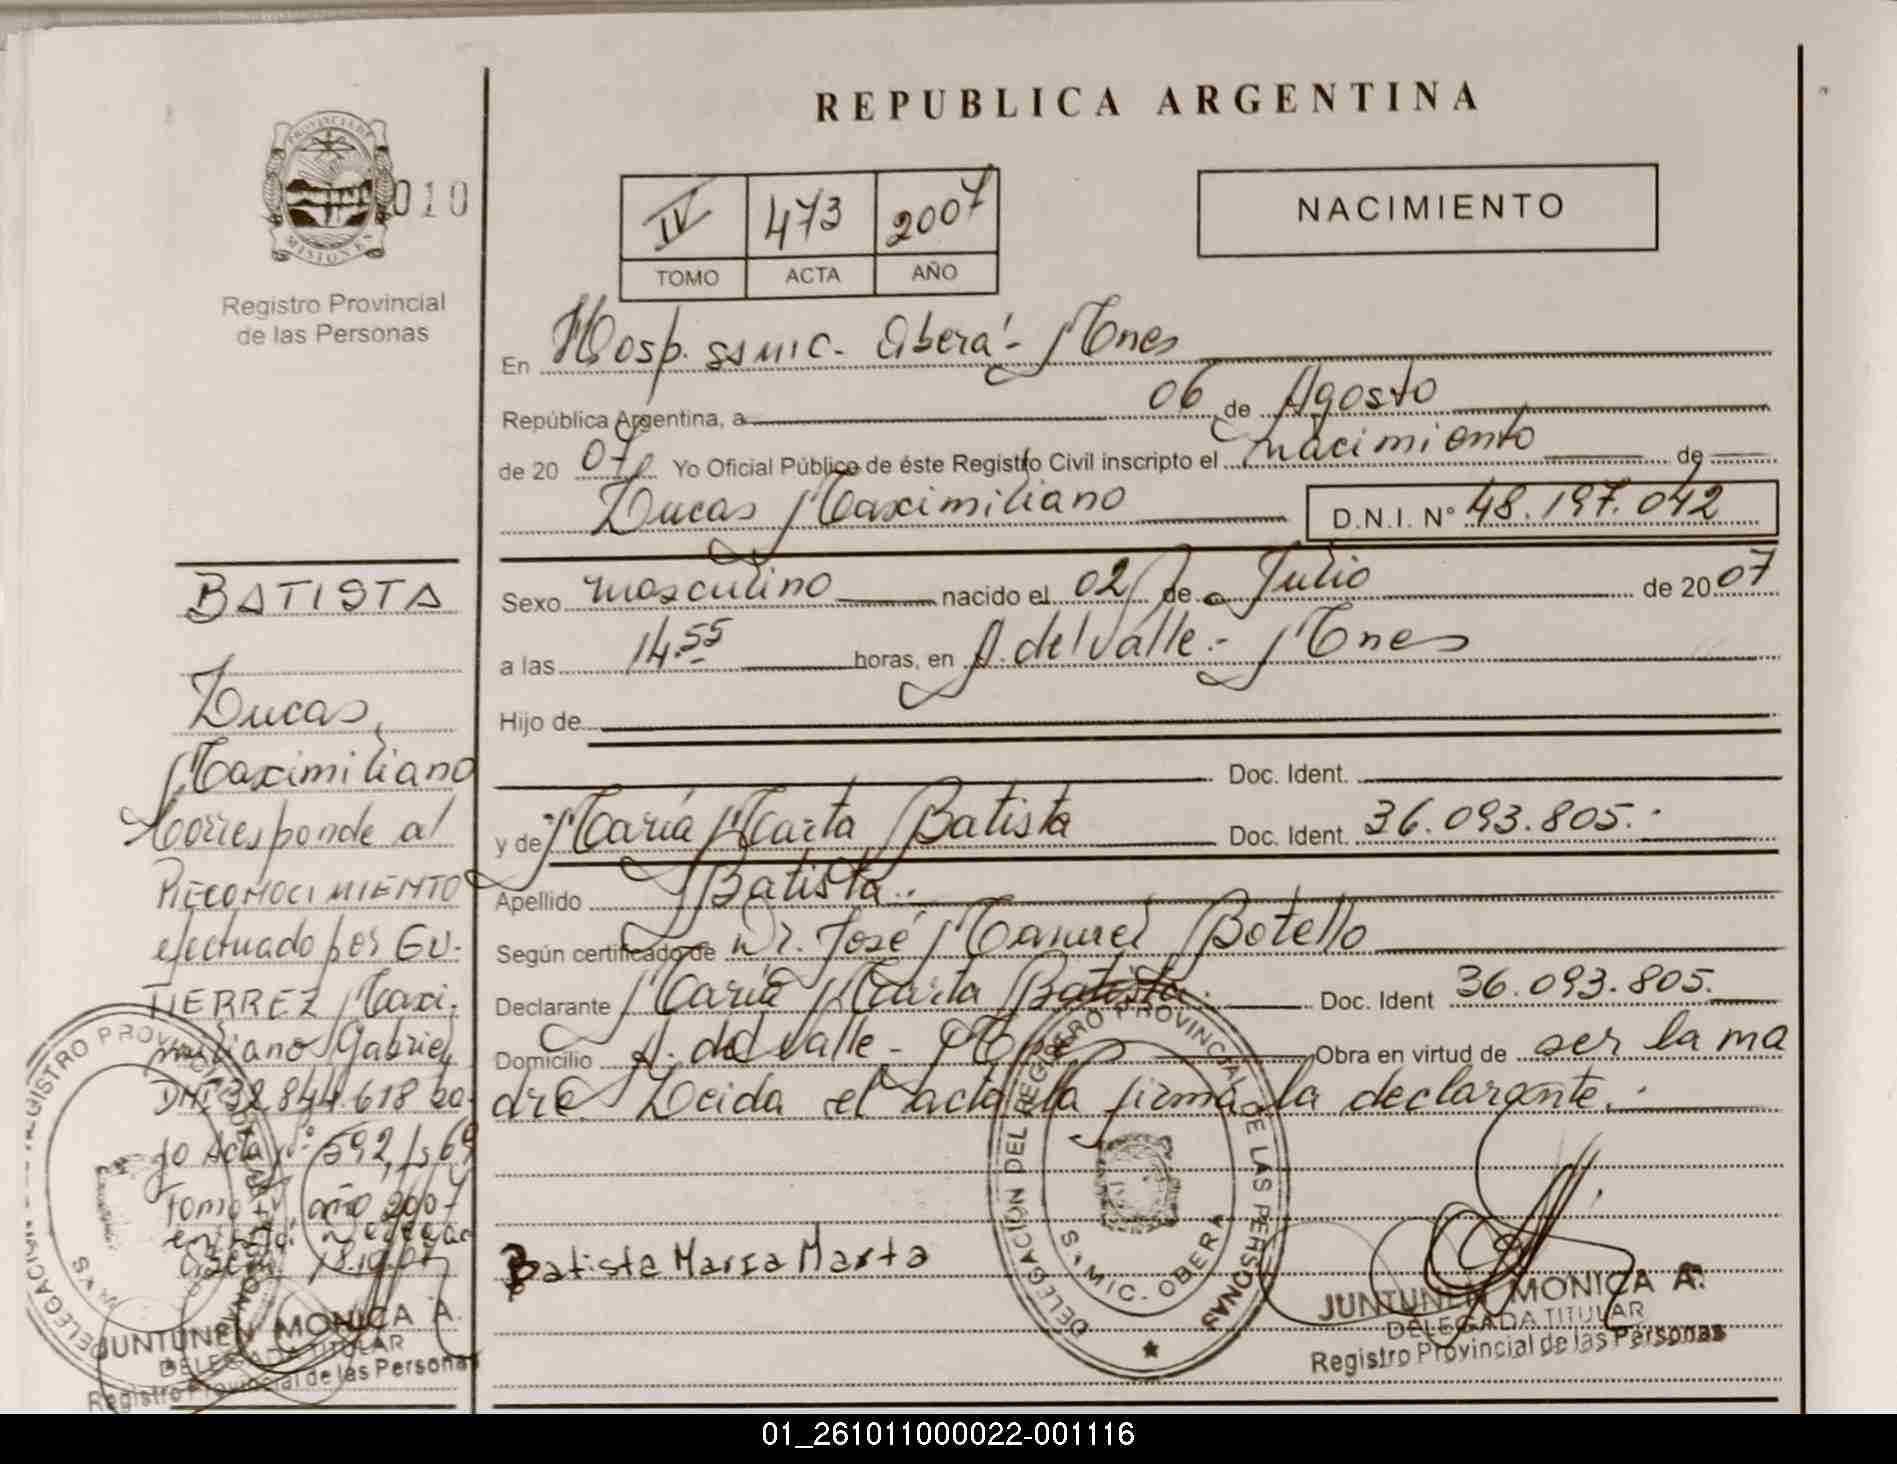 REPUBLICA ARGENTINA
PROVINCIA DE
MISIONES
010
Registro Provincial
de las Personas
IV 473 2007
TOMO ACTA AÑO
NACIMIENTO
En Hosp. SSMIC. Oberá - Mnes
República Argentina, a 06 de Agosto
de 2007 Yo Oficial Público de éste Registro Civil inscripto el nacimiento de
Lucas Maximiliano D.N.I. N° 48.197.042
Sexo masculino nacido el 02 de Julio de 2007
a las 14.55 horas, en A. del Valle.- Mnes
Hijo de
Doc. Ident.
y de María Marta Batista Doc. Ident. 36.093.805.-
Apellido Batista.
Según certificado de Dr. José Manuel Botello
Declarante María Marta Batista. Doc. Ident 36.093.805.
Domicilio A. del Valle - Mnes Obra en virtud de ser la ma
dre. Leida el acta la firma la declarante.-
Batista Maria Marta
DELEGACIÓN DEL REGISTRO PROVINCIAL DE LAS PERSONAS
S.MIC. OBERA
JUNTUNEN MONICA A.
DELEGADA TITULAR
Registro Provincial de las Personas
BATISTA
Lucas,
Maximiliano
Corresponde al
RECONOCIMIENTO
efectuado por GU-
TIERREZ Maxi-
miliano Gabriel
DNI 32.844.618 ba-
jo Acta N° 592, fs 69
Tomo IV año 2007
JUNTUNEN MONICA A.
DELEGADA TITULAR
Registro Provincial de las Personas
01_261011000022-001116